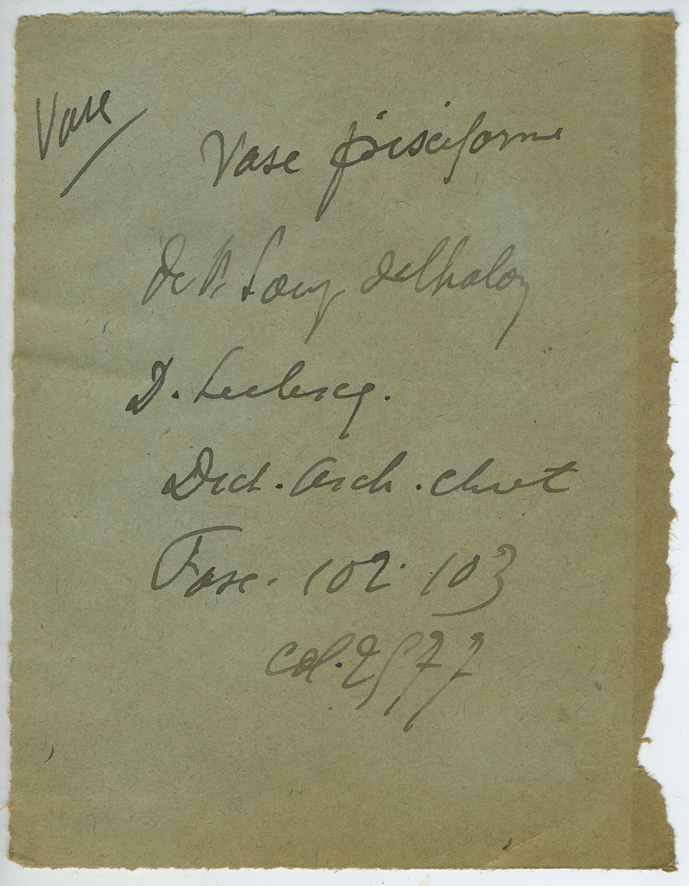 Vase
Vase pisciforme
de P.
D. Leclercq.
Dict. arch. chret
Fasc. 102. 103
col. 2577